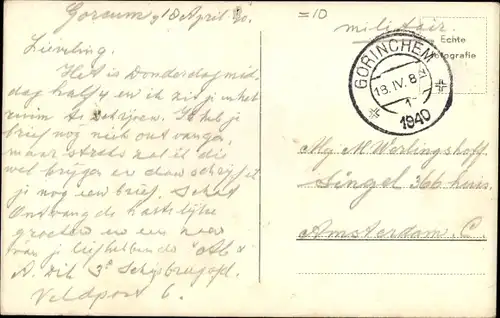 Gorcum, 18 April 40.
=10
militair.
Echte
Fotografie
GORINCHEM
18.IV. 8
1940
Lieveling.
Het is Donderdag mid-
dag half 4 en ik zit je in het
ruim te schrijven. Ik heb je
brief nog niet ontvangen
maar straks zal ik die
wel krygen en dan schryf ik
je nog een brief. Schat
Ontvang de hartelijke
groeten en een
van je liefhebbende Ab
3e
Veldpost 6.
Mej M Worlingshoff.
Singel 366 huis.
Amsterdam. C.